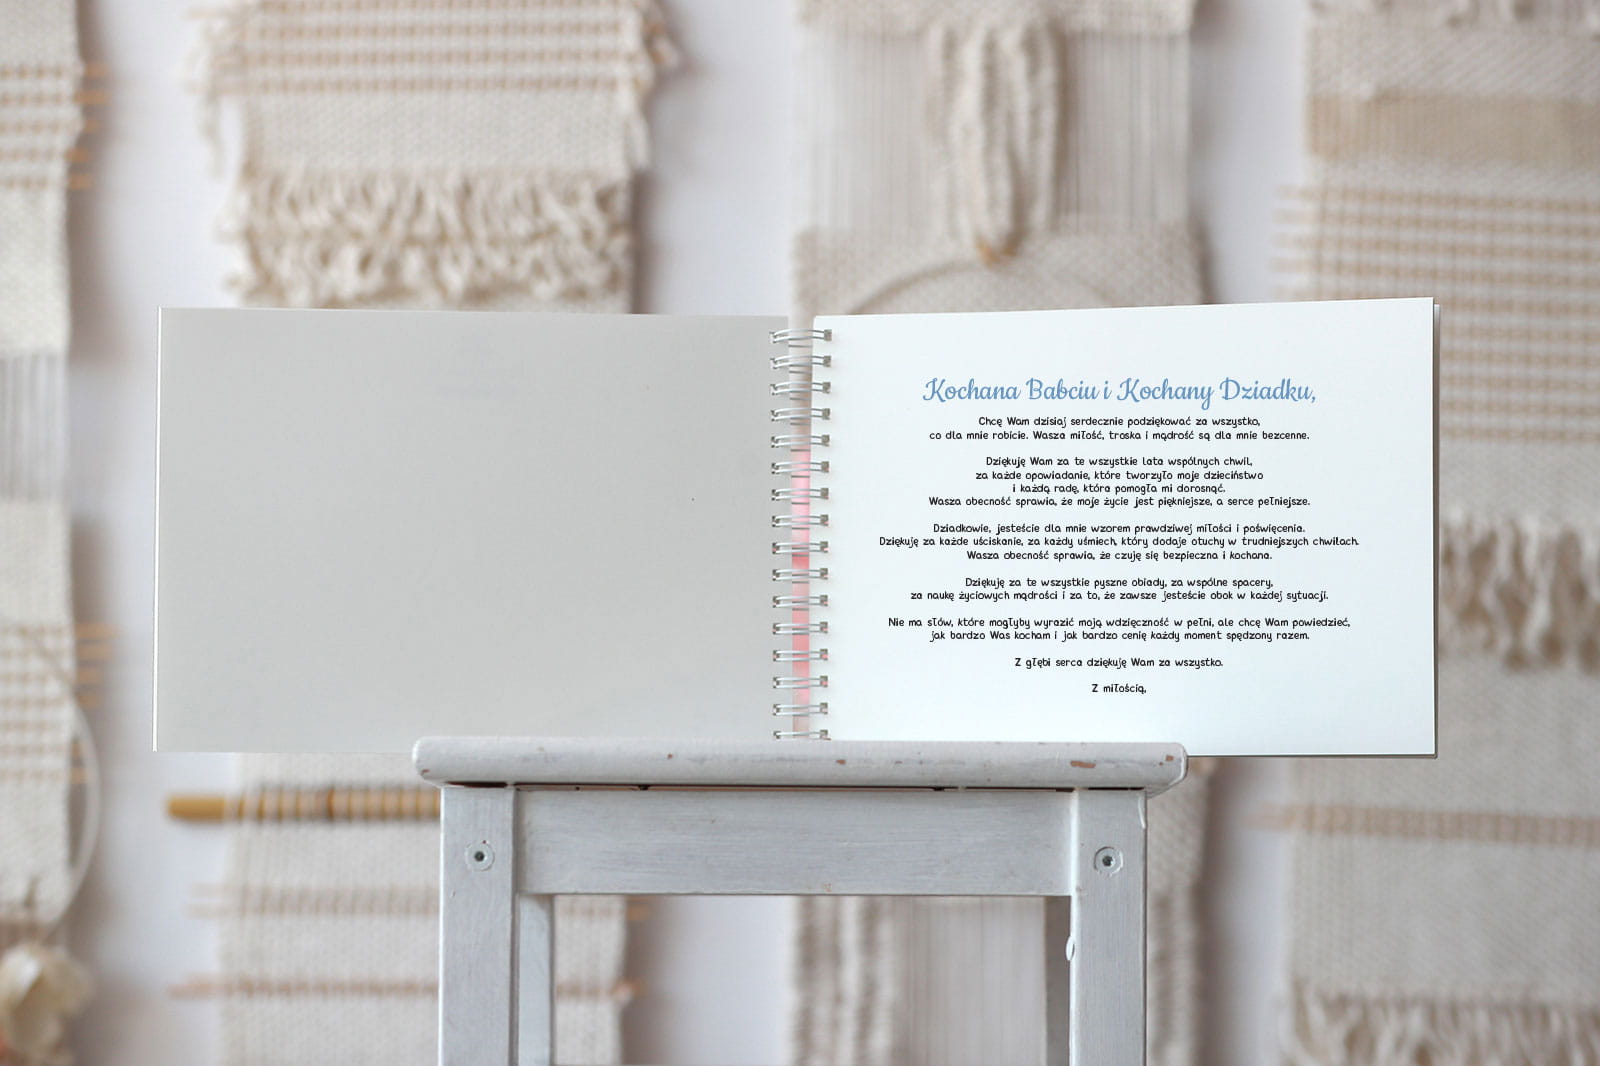 Kochana Babciu i Kochany Dziadku,
Chcę Wam dzisiaj serdecznie podziękować za wszystko,
co dla mnie robicie. Wasza miłość, troska i mądrość są dla mnie bezcenne.
Dziękuję Wam za te wszystkie lata wspólnych chwil,
za każde opowiadanie, które tworzyło moje dzieciństwo
i każdą radę, która pomogła mi dorosnąć.
Wasza obecność sprawia, że moje życie jest piękniejsze, a serce pełniejsze.
Dziadkowie, jesteście dla mnie wzorem prawdziwej miłości i poświęcenia.
Dziękuję za każde uściskanie, za każdy uśmiech, który dodaje otuchy w trudniejszych chwilach.
Wasza obecność sprawia, że czuję się bezpieczna i kochana.
Dziękuję za te wszystkie pyszne obiady, za wspólne spacery,
za naukę życiowych mądrości i za to, że zawsze jesteście obok w każdej sytuacji.
Nie ma słów, które mogłyby wyrazić moją wdzięczność w pełni, ale chcę Wam powiedzieć,
jak bardzo Was kocham i jak bardzo cenię każdy moment spędzony razem.
Z głębi serca dziękuję Wam za wszystko.
Z miłością,